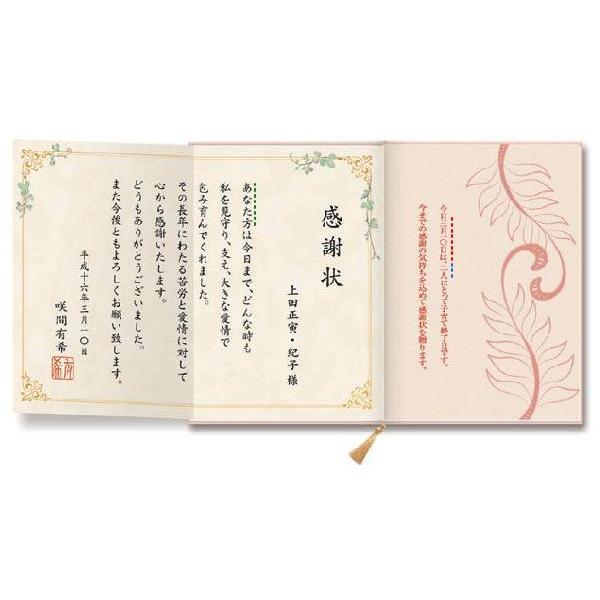 今日三月一〇日は、二人にとって子育て終了日です。
今までの感謝の気持ちを込めて感謝状を贈ります。
感謝状
上田正寅・紀子 様
あなた方は今日まで、どんな時も
私を見守り、支え、大きな愛情で
包み育んでくれました。
その長年にわたる苦労と愛情に対して
心から感謝いたします。
どうもありがとうございました。
また今後ともよろしくお願い致します。
平成十六年三月一〇日
咲間有希